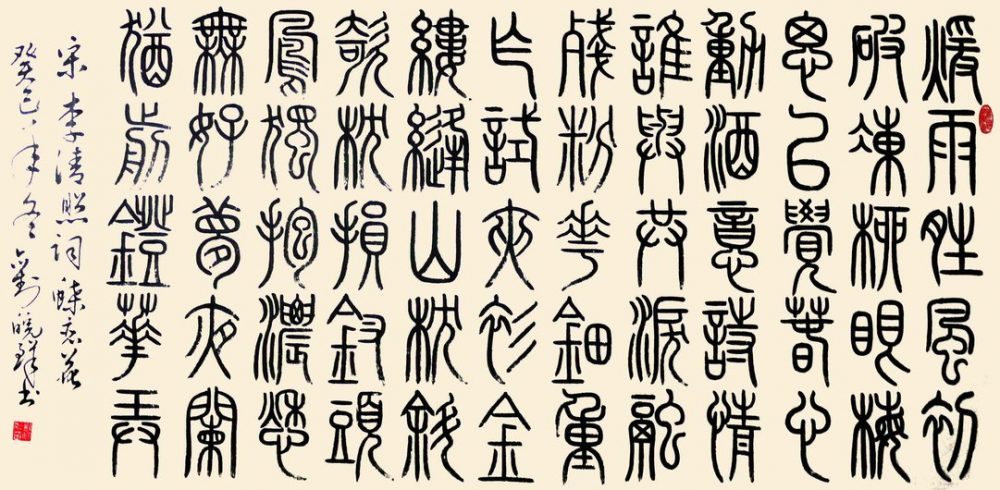 暖雨晴風初
破凍柳眼梅
思已覺春心
動酒意詩情
誰與共淚融
殘粉花鈿重
乍試夾衫金
縷縫山枕斜
欹枕損釵頭
鳳獨抱濃愁
無好夢夜闌
猶剪燈華弄
宋李清照詞蝶恋花
癸巳年冬劉曉書